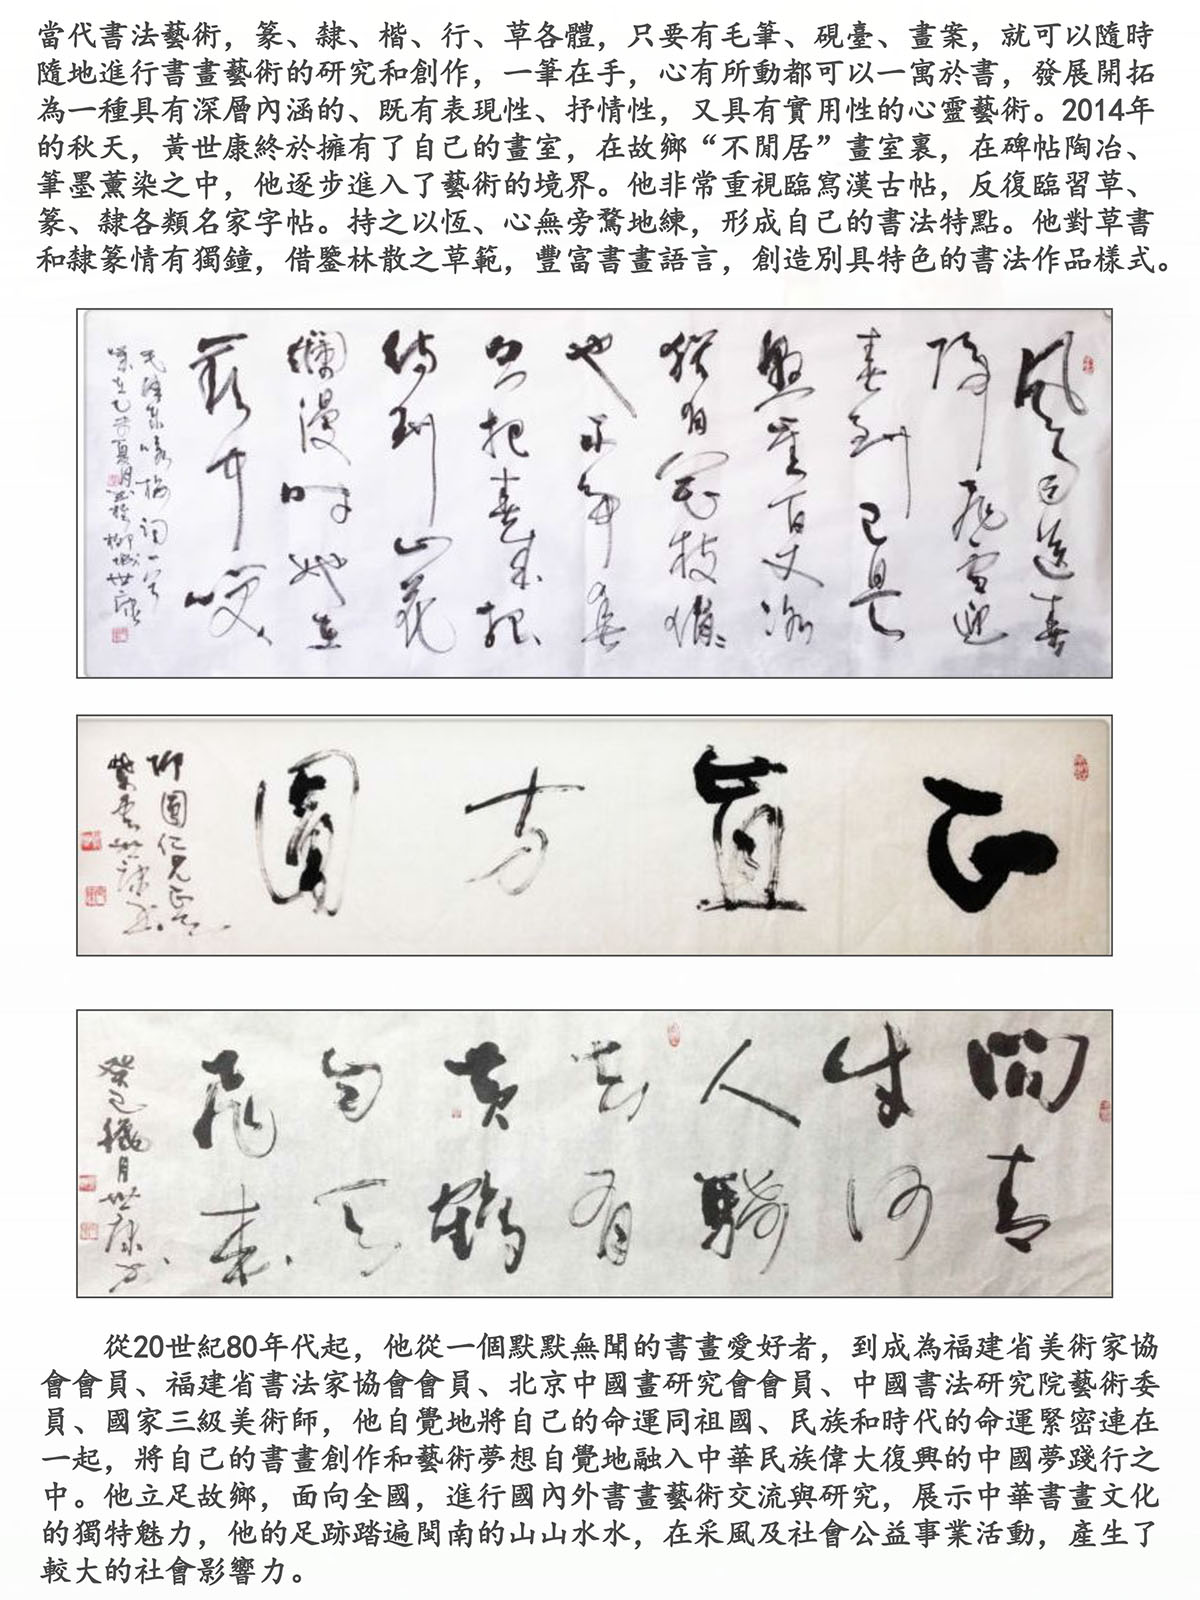 當代書法藝術，篆、隸、楷、行、草各體，只要有毛筆、硯臺、畫案，就可以隨時
隨地進行書畫藝術的研究和創作，一筆在手，心有所動都可以一寓於書，發展開拓
為一種具有深層內涵的、既有表現性、抒情性，又具有實用性的心靈藝術。2014年
的秋天，黃世康終於擁有了自己的畫室，在故鄉“不閒居”畫室裏，在碑帖陶冶、
筆墨薰染之中，他逐步進入了藝術的境界。他非常重視臨寫漢古帖，反復臨習草、
篆、隸各類名家字帖。持之以恆、心無旁騖地練，形成自己的書法特點。他對草書
和隸篆情有獨鐘，借鑒林散之草範，豐富書畫語言，創造別具特色的書法作品樣式。
風雨送春
歸飛雪迎
春到已是
懸崖百丈冰
猶有花枝俏
俏也不爭春
只把春來報
待到山花
爛漫時她在
叢中笑
毛澤東咏梅詞一首
正直方圓
柳園仁兄正之
紫雲世康書
問青
牛何
人騎
去有
黃鶴
自天
飛來
癸巳臘月世康書
從20世紀80年代起，他從一個默默無聞的書畫愛好者，到成為福建省美術家協
會會員、福建省書法家協會會員、北京中國畫研究會會員、中國書法研究院藝術委
員、國家三級美術師，他自覺地將自己的命運同祖國、民族和時代的命運緊密連在
一起，將自己的書畫創作和藝術夢想自覺地融入中華民族偉大復興的中國夢踐行之
中。他立足故鄉，面向全國，進行國內外書畫藝術交流與研究，展示中華書畫文化
的獨特魅力，他的足跡踏遍閩南的山山水水，在采風及社會公益事業活動，產生了
較大的社會影響力。